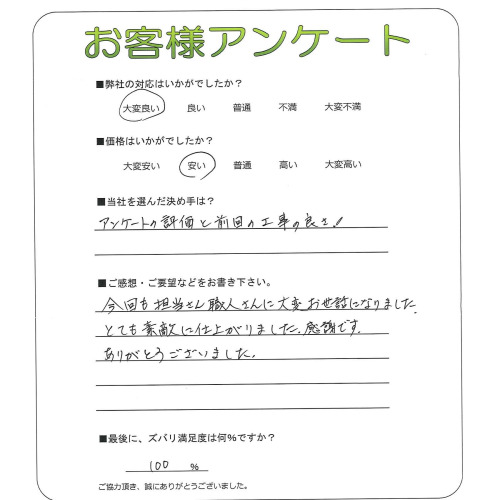 お客様アンケート
■弊社の対応はいかがでしたか?
大変良い 良い 普通 不満 大変不満
■価格はいかがでしたか?
大変安い 安い 普通 高い 大変高い
■当社を選んだ決め手は?
アンケートの評価と前回の工事の良さ!
■ご感想・ご要望などをお書き下さい。
今回も担当さん職人さんに大変お世話になりました。
とても素敵に仕上がりました。感謝です。
ありがとうございました。
■最後に、ズバリ満足度は何%ですか?
100 %
ご協力頂き、誠にありがとうございました。